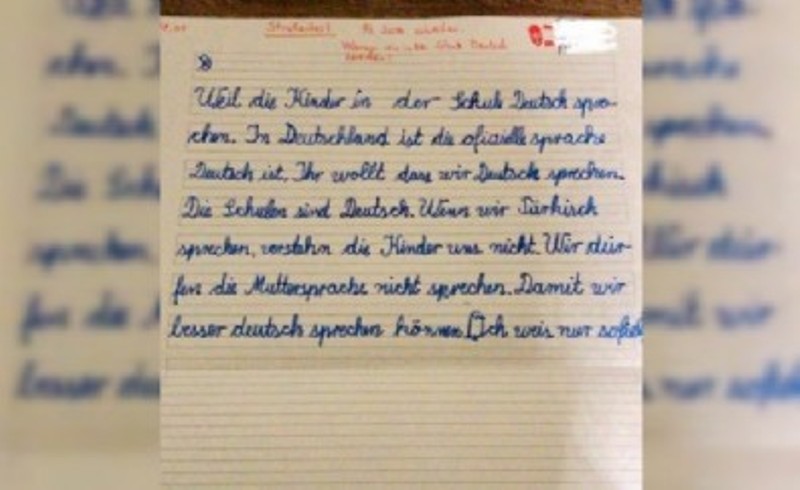 Strafarbeit!
Weil die Kinder in der Schule Deutsch spre-
chen. In Deutschland ist die ofizielle sprache
Deutsch ist. Ihr wollt dass wir Deutsch sprechen.
Die Schulen sind Deutsch. Wenn wir Türkisch
sprechen, verstehn die Kinder uns nicht. Wir dür-
fen die Muttersprache nicht sprechen. Damit wir
besser deutsch sprechen können. Ich weis nur